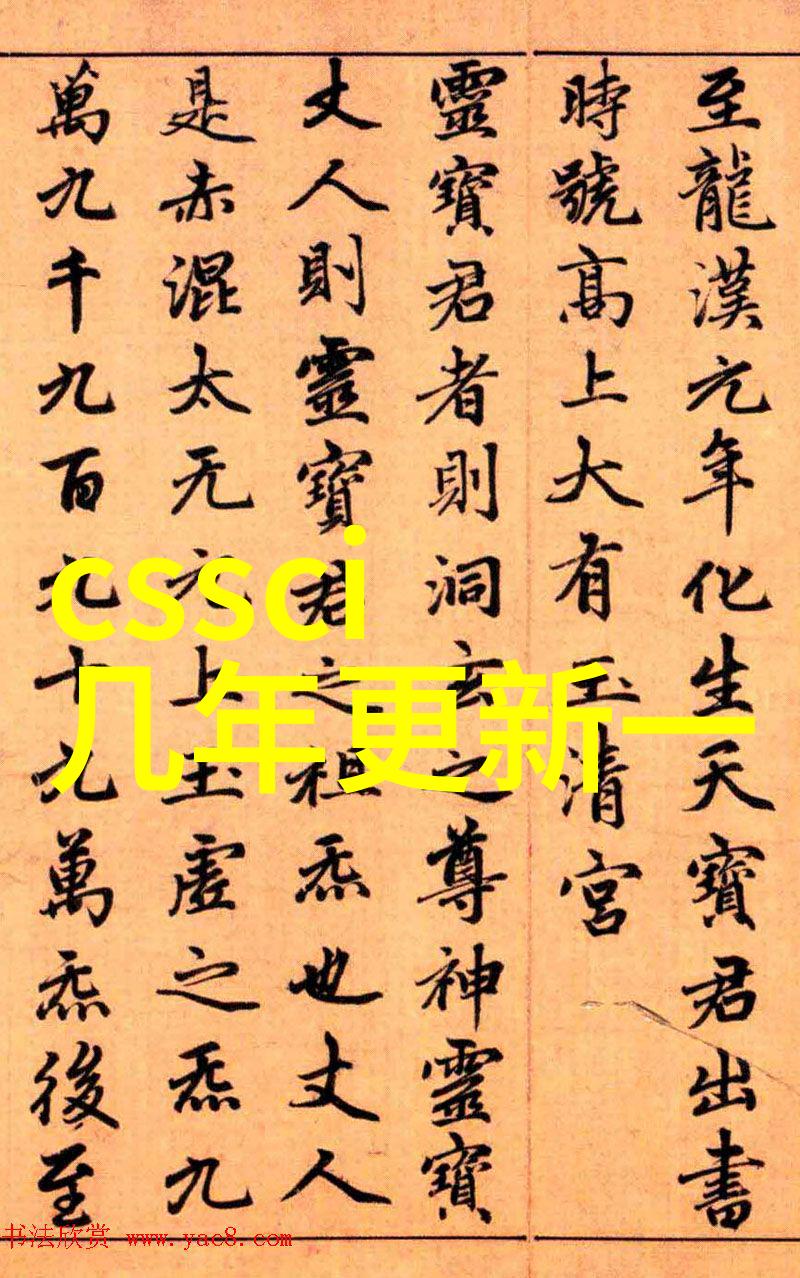 至龍漢元年化生天寶君出書
時號高上大有玉清宮
靈寶君者則洞玄之尊神靈寶
丈人則靈寶君之祖炁也丈人
是赤混太无元上玉虛之炁九
萬九千九百九十九萬炁後至
cssci
几年更新一
书法欣赏 www.yac8.com